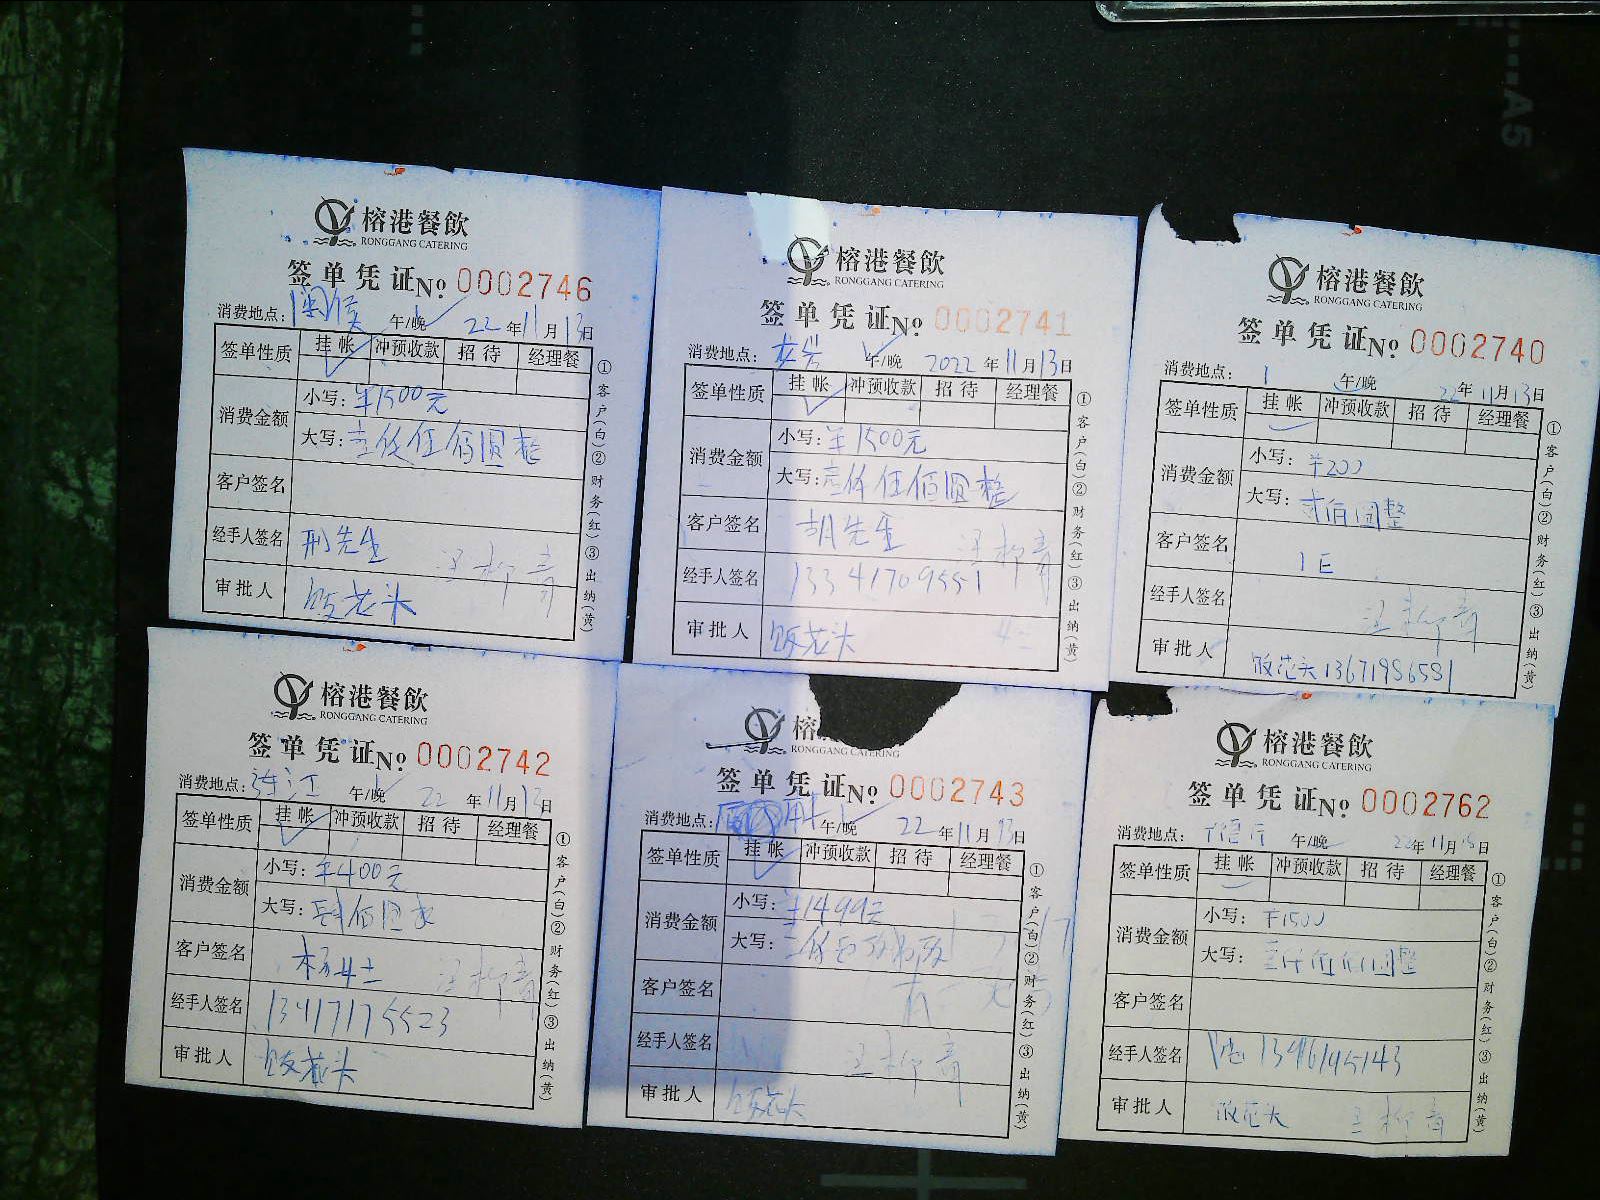 榕港餐飲
RONGGANG CATERING
签单凭证 No 0002746
消费地点: 闽侯 午/晚 22年11月13日
签单性质 挂帐 冲预收款 招待 经理餐
消费金额 小写: ¥1500元
大写: 壹仟伍佰圆整
客户签名
经手人签名 邢先生 汪柳青
审批人 饭花头
①客户(白)②财务(红)③出纳(黄)
榕港餐飲
RONGGANG CATERING
签单凭证 No 0002741
消费地点: 午/晚 2022年11月13日
签单性质 挂帐 冲预收款 招待 经理餐
消费金额 小写: ¥1500元
大写: 壹仟伍佰圆整
客户签名 胡先生 汪柳青
经手人签名 13341709551
审批人 饭花头
①客户(白)②财务(红)③出纳(黄)
榕港餐飲
RONGGANG CATERING
签单凭证 No 0002740
消费地点: 午/晚 22年11月13日
签单性质 挂帐 冲预收款 招待 经理餐
消费金额 小写: ¥200
大写: 贰佰圆整
客户签名 1E
经手人签名 汪柳青
审批人 饭花头 13671986581
①客户(白)②财务(红)③出纳(黄)
榕港餐飲
RONGGANG CATERING
签单凭证 No 0002742
消费地点: 连江 午/晚 22年11月13日
签单性质 挂帐 冲预收款 招待 经理餐
消费金额 小写: ¥400元
大写: 肆佰圆
客户签名 杨女士 汪柳青
经手人签名 13417175523
审批人 饭花头
①客户(白)②财务(红)③出纳(黄)
榕
RONGGANG CATERING
签单凭证 No 0002743
消费地点: 午/晚 22年11月13日
签单性质 挂帐 冲预收款 招待 经理餐
消费金额 小写: ¥1499元
大写:
客户签名
经手人签名 汪柳青
审批人 饭花头
①客户(白)②财务(红)③出纳(黄)
榕港餐飲
RONGGANG CATERING
签单凭证 No 0002762
消费地点: 午/晚 22年11月15日
签单性质 挂帐 冲预收款 招待 经理餐
消费金额 小写: ¥1500
大写: 壹仟伍佰圆整
客户签名
经手人签名 1396195143
审批人 饭花头 汪柳青
①客户(白)②财务(红)③出纳(黄)
A5